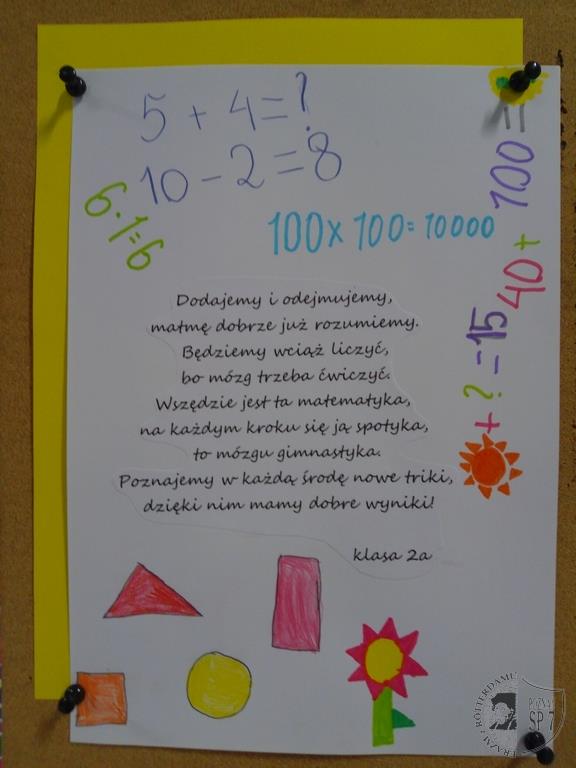 5 + 4 = ?
10 - 2 = 8
6·1=6
100 x 100 = 10000
40 + 100 =
+ ? = 15
Dodajemy i odejmujemy,
matmę dobrze już rozumiemy.
Będziemy wciąż liczyć,
bo mózg trzeba ćwiczyć.
Wszędzie jest ta matematyka,
na każdym kroku się ją spotyka,
to mózgu gimnastyka.
Poznajemy w każdą środę nowe triki,
dzięki nim mamy dobre wyniki!
klasa 2a
POZNAŃ
SP 7
ERAZM Z ROTTERDAMU